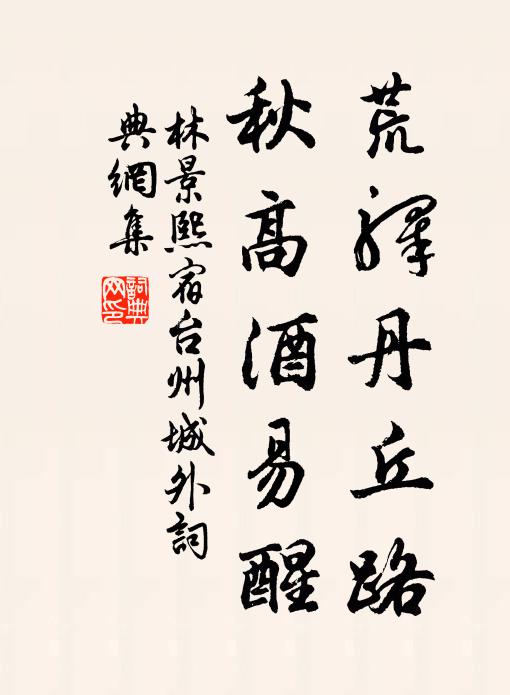 荒驛丹丘路
秋高酒易醒
林景熙宿台州城外詞
典網集
詞典网印